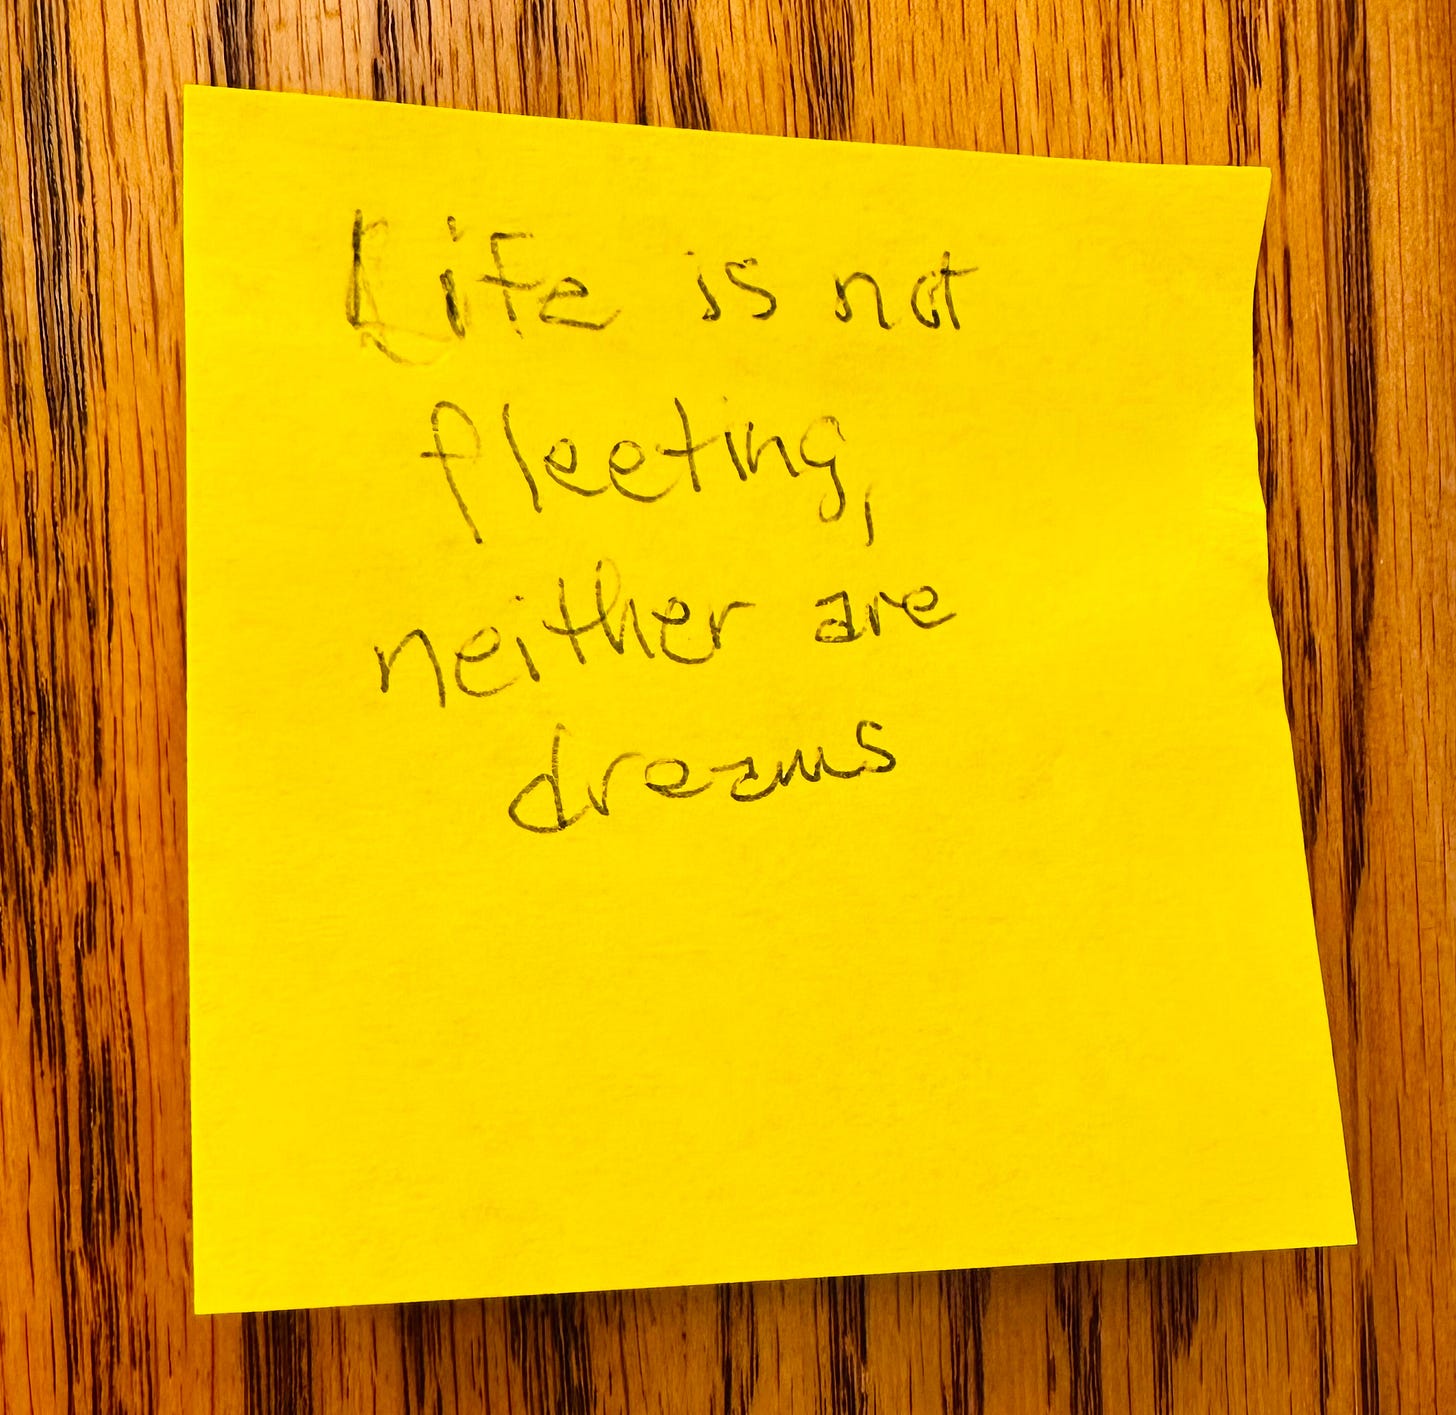 Life is not
fleeting,
neither are
dreams